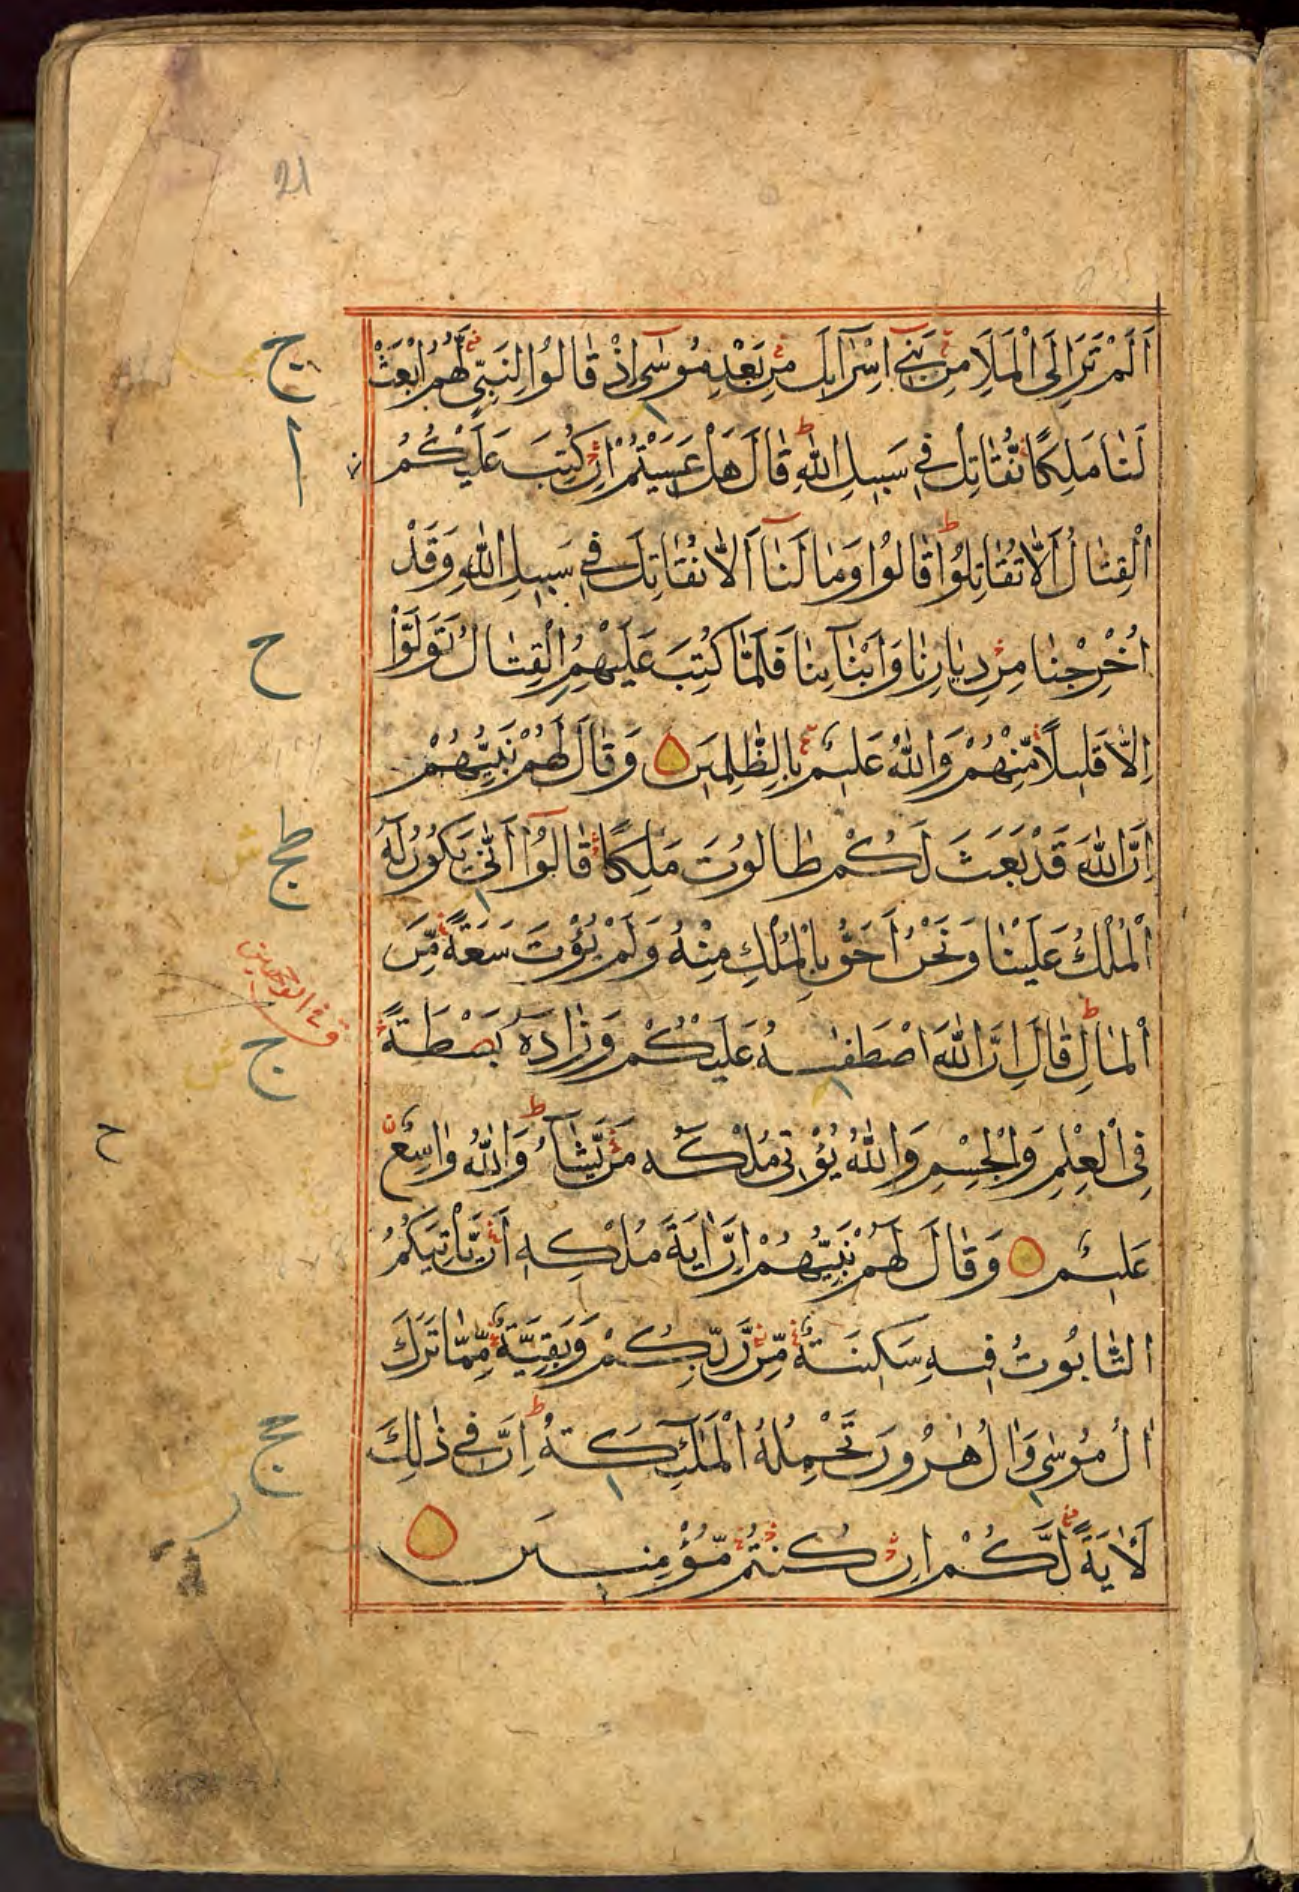 21
اَلَمْ تَرَ اِلَى الْمَلَاِ مِنْ بَنِىٓ اِسْرَآئٖلَ مِنْ بَعْدِ مُوسٰٓى اِذْ قَالُوا لِنَبِىٍّ لَّهُمُ ابْعَثْ
لَنَا مَلِكًا نُّقَاتِلْ فِى سَبِيلِ اللّٰهِ ط قَالَ هَلْ عَسَيْتُمْ اِنْ كُتِبَ عَلَيْكُمُ
الْقِتَالُ اَلَّا تُقَاتِلُوا ط قَالُوا وَمَا لَنَآ اَلَّا نُقَاتِلَ فِى سَبِيلِ اللّٰهِ وَقَدْ
اُخْرِجْنَا مِنْ دِيَارِنَا وَاَبْنَآئِنَا فَلَمَّا كُتِبَ عَلَيْهِمُ الْقِتَالُ تَوَلَّوْا
اِلَّا قَلِيلًا مِّنْهُمْ وَاللّٰهُ عَلِيمٌ بِالظّٰلِمِينَ وَقَالَ لَهُمْ نَبِيُّهُمْ
اِنَّ اللّٰهَ قَدْ بَعَثَ لَكُمْ طَالُوتَ مَلِكًا قَالُوٓا اَنّٰى يَكُونُ لَهُ
الْمُلْكُ عَلَيْنَا وَنَحْنُ اَحَقُّ بِالْمُلْكِ مِنْهُ وَلَمْ يُؤْتَ سَعَةً مِّنَ
الْمَالِ ط قَالَ اِنَّ اللّٰهَ اصْطَفٰىهُ عَلَيْكُمْ وَزَادَهُ بَصْطَةً
فِى الْعِلْمِ وَالْجِسْمِ وَاللّٰهُ يُؤْتِى مُلْكَهُ مَنْ يَّشَآءُ ط وَاللّٰهُ وَاسِعٌ
عَلِيمٌ وَقَالَ لَهُمْ نَبِيُّهُمْ اِنَّ اٰيَةَ مُلْكِهٖ اَنْ يَّاْتِيَكُمُ
التَّابُوتُ فِيهِ سَكِينَةٌ مِّنْ رَّبِّكُمْ وَبَقِيَّةٌ مِّمَّا تَرَكَ
اٰلُ مُوسٰى وَاٰلُ هٰرُونَ تَحْمِلُهُ الْمَلٰٓئِكَةُ ط اِنَّ فِى ذٰلِكَ
لَاٰيَةً لَّكُمْ اِنْ كُنْتُمْ مُّؤْمِنِينَ